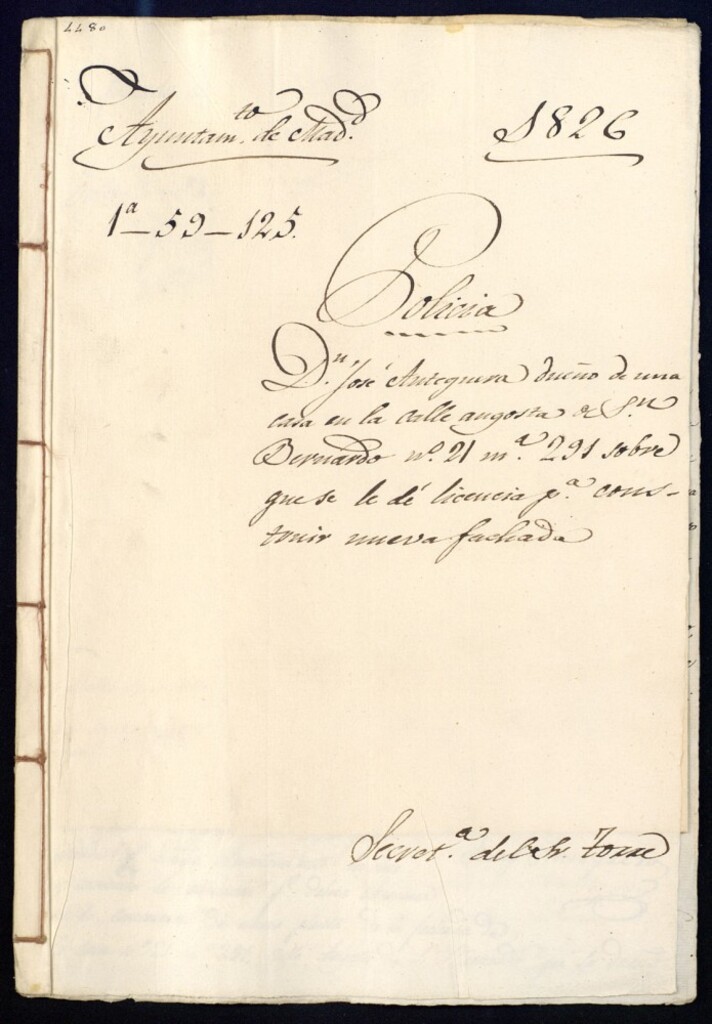 4480
Ayuntam.to de Mad.d
1826
1ª-59-125.
Policia
D.n José Antequera dueño de una
casa en la calle angosta de S.n
Bernardo nº. 21 m.ª 291 sobre
que se le dé licencia p.ª cons-
truir nueva fachada
Secret.ª del Sr. Torre